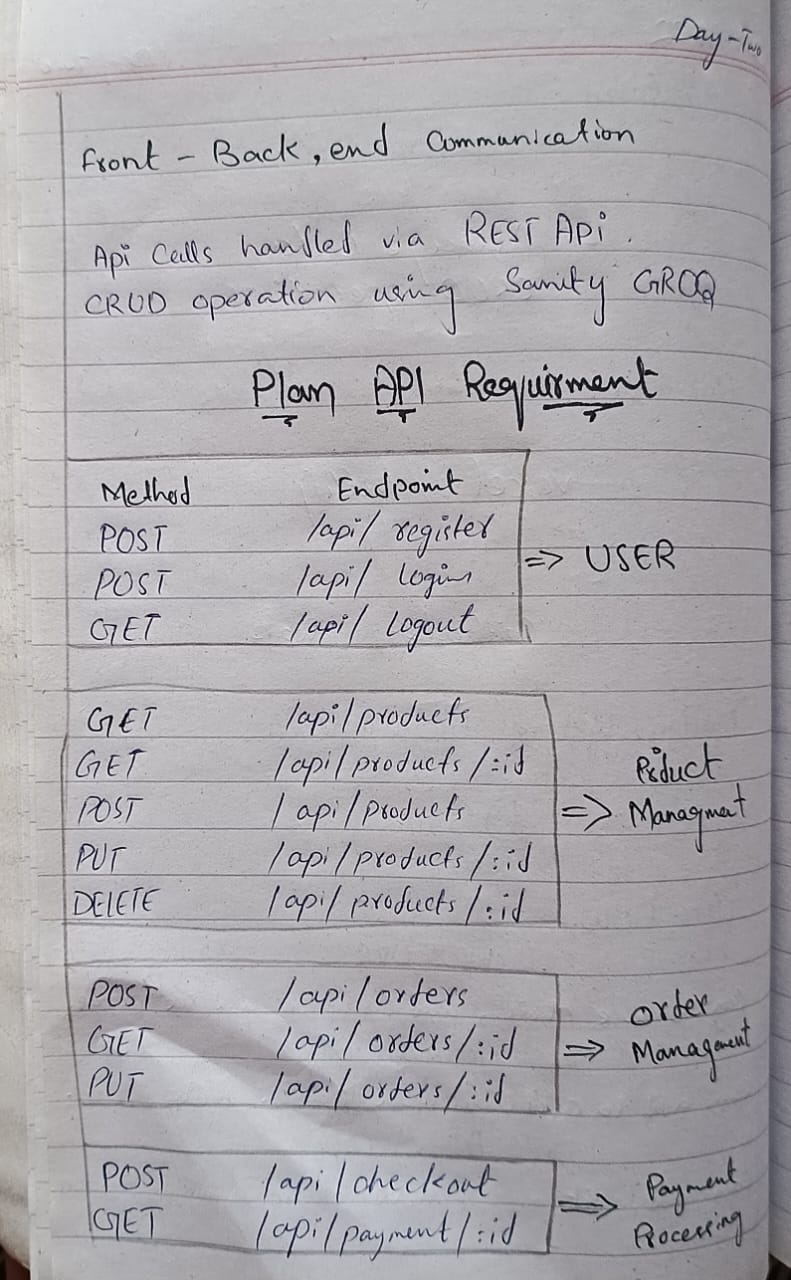 Day-Two
Front - Back, end Communication
Api Calls handled via REST Api.
CRUD operation using Sanity GROQ
Plan API Requirment
Method Endpoint
POST /api/ register
POST /api/ login
GET /api/ logout
=> USER
GET /api/products
GET /api/products/:id
POST /api/products
PUT /api/products/:id
DELETE /api/products/:id
=> Product
Managment
POST /api/orders
GET /api/orders/:id
PUT /api/orders/:id
=> Order
Management
POST /api/checkout
GET /api/payment/:id
=> Payment
Processing